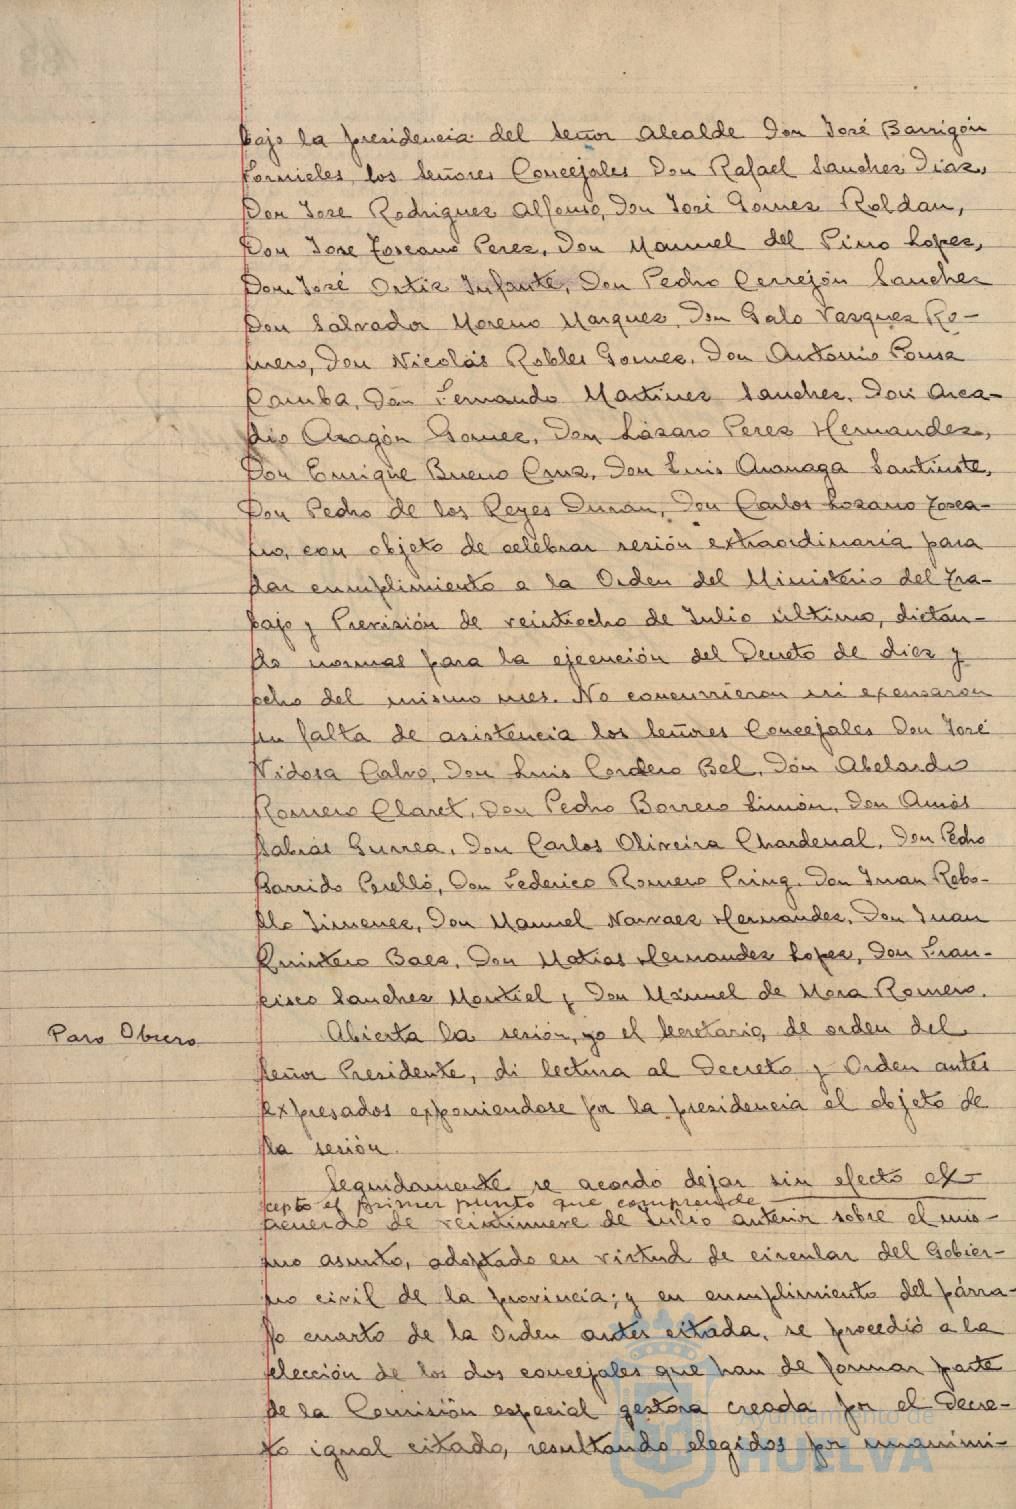 bajo la presidencia del Señor Alcalde Don José Barrigón
Fornieles, los Señores Concejales Don Rafael Sanchez Diaz,
Don Jose Rodriguez Alfonso, Don José Gomez Roldan,
Don Jose Toscano Perez, Don Manuel del Pino Lopez,
Don José Ortiz Infante, Don Pedro Cerrejón Sanchez
Don Salvador Moreno Marquez, Don Galo Vazquez Ro-
mero, Don Nicolás Robles Gomez, Don Antonio Pousa
Camba, Don Fernando Martinez Sanchez, Don Arca-
dio Aragón Gomez, Don Lázaro Perez Hernandez,
Don Enrique Bueno Cruz, Don Luis Aranaga Santiuste,
Don Pedro de los Reyes Duran, Don Carlos Lozano Tosca-
no, con objeto de celebrar sesión extraordinaria para
dar cumplimiento a la Orden del Ministerio del Tra-
bajo y Previsión de veintiocho de Julio último, dictan-
do normas para la ejecución del Decreto de diez y
ocho del mismo mes. No concurrieron ni excusaron
su falta de asistencia los Señores Concejales Don José
Nidosa Calvo, Don Luis Cordero Bel, Don Abelardo
Romero Claret, Don Pedro Borrero Limón, Don Amós
Sabrás Gurrea, Don Carlos Oliveira Chardenal, Don Pedro
Garrido Perelló, Don Federico Romero Pring, Don Juan Rebo-
llo Jimenez, Don Manuel Narvaez Hernandez, Don Juan
Quintero Baez, Don Matias Hernandez Lopez, Don Fran-
cisco Sanchez Montiel y Don Manuel de Mora Romero.
Paro Obrero
Abierta la sesión, yo el Secretario, de orden del
Señor Presidente, di lectura al Decreto y Orden antes
expresados exponiendose por la presidencia el objeto de
la sesión.
Seguidamente se acordo dejar sin efecto ex-
cepto el primer punto que comprende
acuerdo de veintinueve de Julio anterior sobre el mis-
mo asunto, adoptado en virtud de circular del Gobier-
no civil de la provincia; y en cumplimiento del párra-
fo cuarto de la Orden antes citada, se procedió a la
elección de los dos concejales que han de formar parte
de la Comisión especial gestora creada por el Decre-
to igual citado, resultando elegidos por unanimi-
Ayuntamiento de
HUELVA